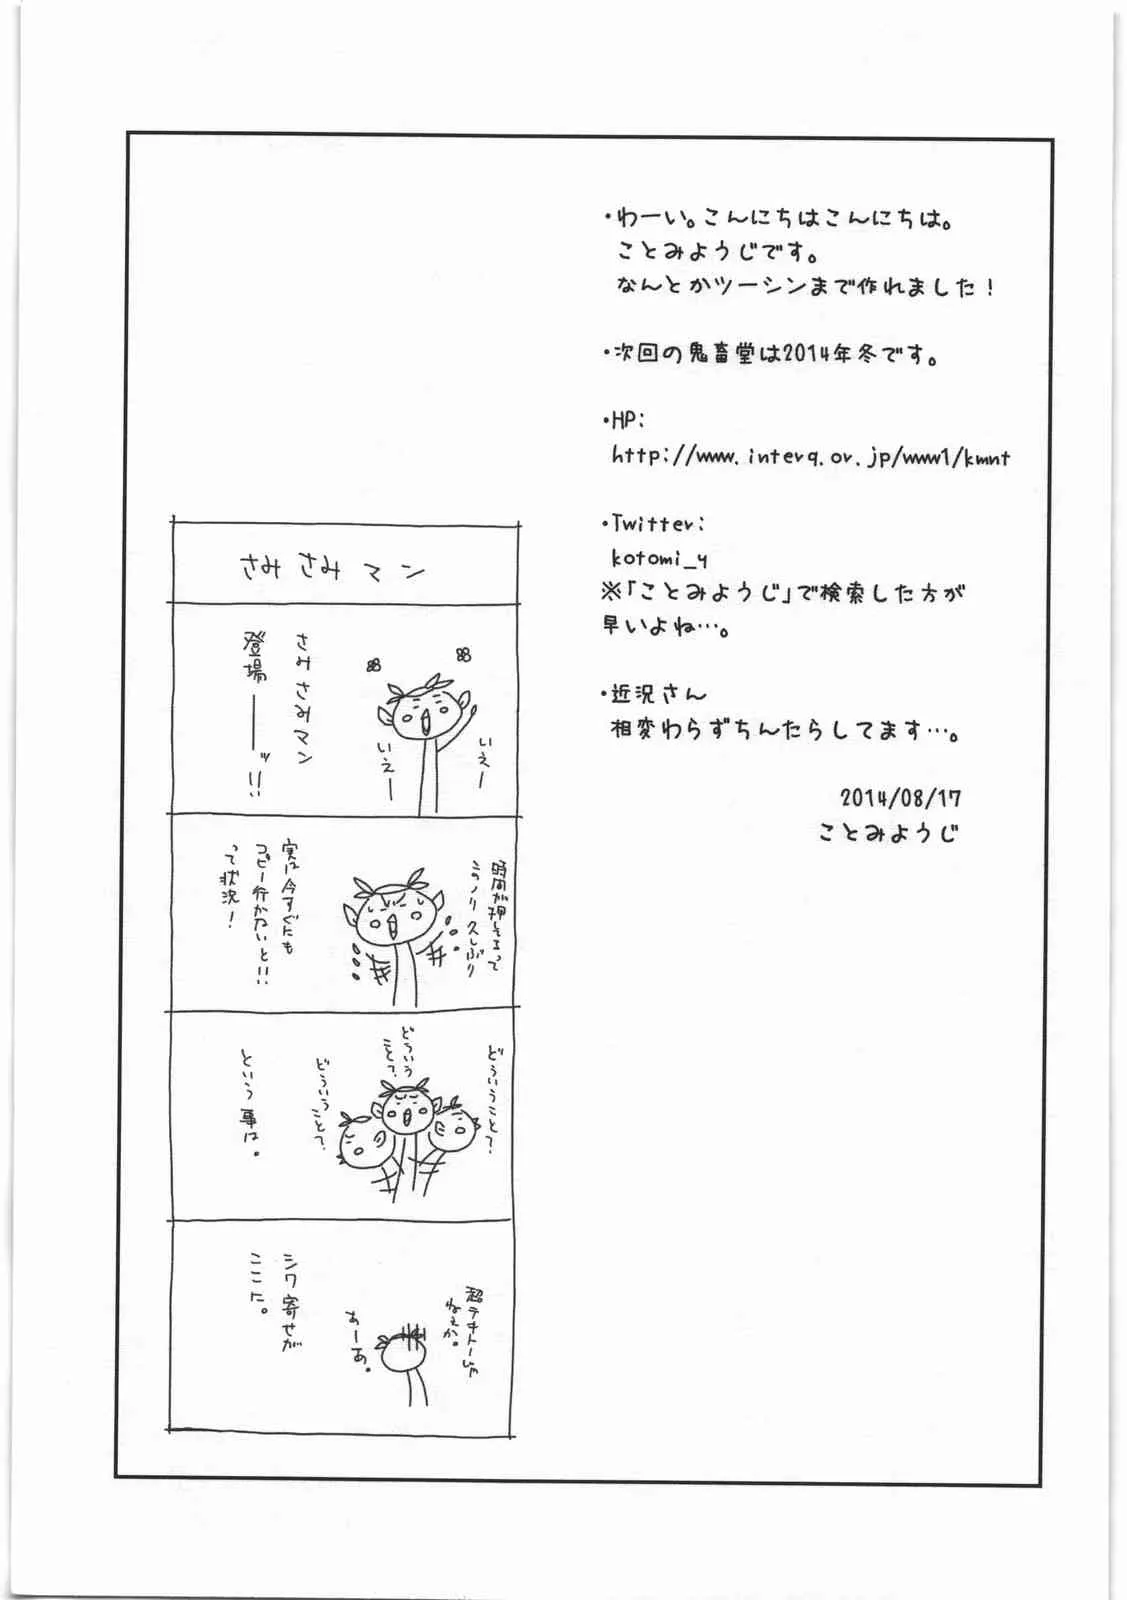 ・わーい。こんにちはこんにちは。
ことみようじです。
なんとかツーシンまで作れました！
・次回の鬼畜堂は2014年冬です。
・HP:
http://www.interq.or.jp/www1/kmnt
・Twitter:
kotomi_y
※「ことみようじ」で検索した方が
早いよね…。
・近況さん
相変わらずちんたらしてます…。
2014/08/17
ことみようじ
さみさみマン
さみさみマン
登場――ッ!!
いえー
いえー
時間が押してるって
このノリ久しぶり
実は今すぐにも
コピー行かないと!!
って状況！
どういうこと？
どういう
こと？
どういうこと？
という事は。
超テキトーじゃ
ねぇか。
あーあ。
シワ寄せが
ここに。